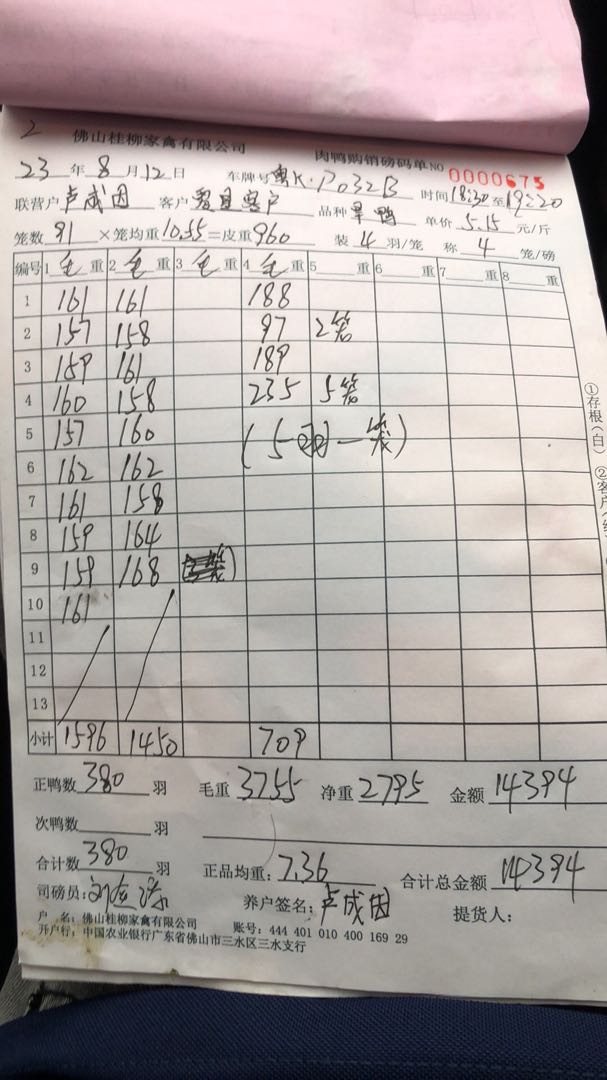 2
佛山桂柳家禽有限公司 肉鸭购销磅码单 NO 0000675
23 年 8 月 12 日 车牌号 粤K·P032B 时间 18:30 至 19:20
联营户 卢成因 客户 客户 品种 旱鸭 单价 5.15 元/斤
笼数 91 ×笼均重 10.55 =皮重 960 装 4 羽/笼 称 4 笼/磅
编号 1 毛 重 2 毛 重 3 毛 重 4 毛 重 5 重 6 重 7 重 8 重
1 161 161 188
2 157 158 97 2笼
3 159 161 189
4 160 158 235 5笼
5 157 160 (5羽一笼)
6 162 162
7 161 158
8 159 164
9 159 168
10 161
11
12
13
小计 1596 1450 709
正鸭数 380 羽 毛重 3755 净重 2795 金额 14394
次鸭数 羽
合计数 380 羽 正品均重: 7.36 合计总金额 14394
司磅员: 养户签名: 卢成因 提货人:
户 名: 佛山桂柳家禽有限公司 账号: 444 401 010 400 169 29
开户行: 中国农业银行广东省佛山市三水区三水支行
①存根(白) ②客户(红